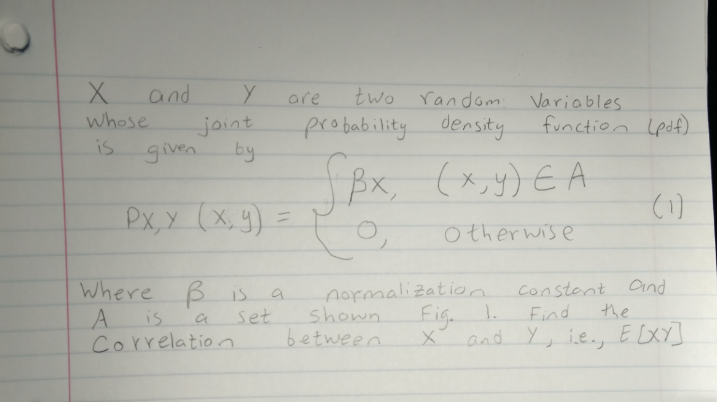 X and Y are two random Variables
Whose joint probability density function (pdf)
is given by
PX,Y (x,y) = { βx, (x,y) ∈ A
0, otherwise (1)
Where β is a normalization constant and
A is a set shown Fig. 1. Find the
Correlation between X and Y, i.e., E[XY]